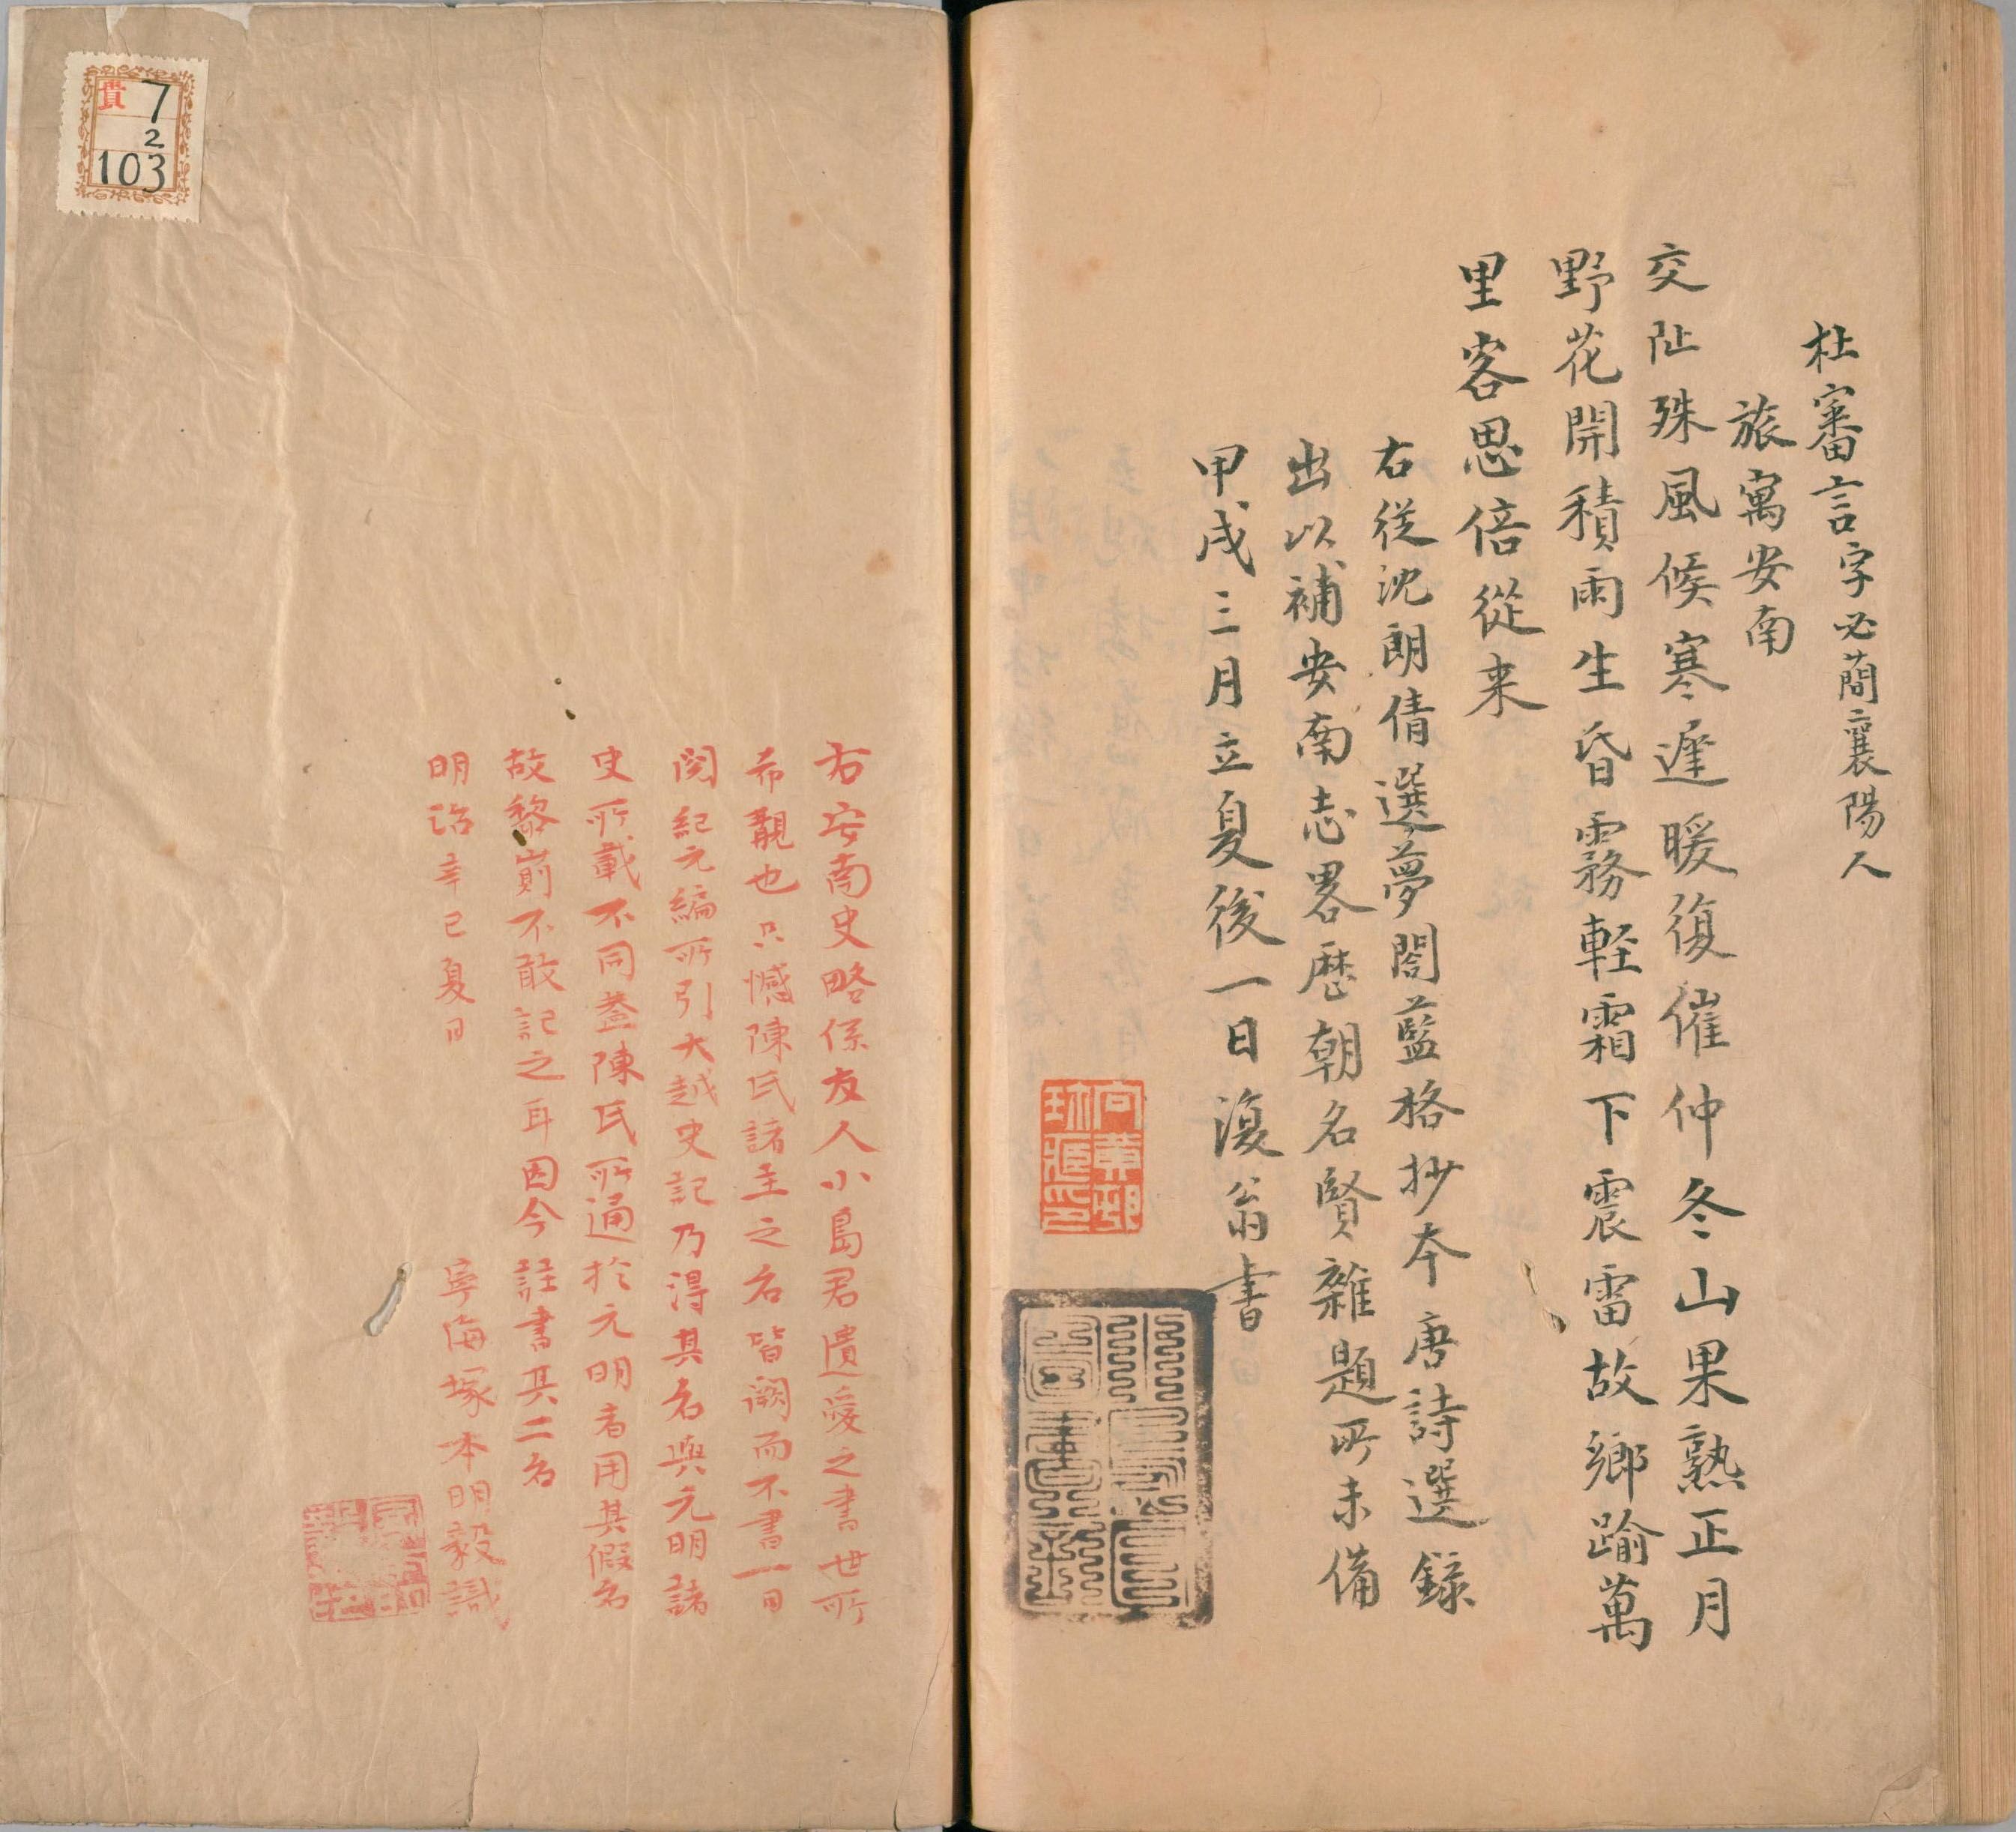 杜審言字必蕑襄陽人
旅寓安南
交阯殊風候寒遲暖復催仲冬山果熟正月
野花開積雨生昏霧輕霜下震雷故鄉踰萬
里客思倍從来
右從沈朗倩選夢閣藍格抄本唐詩選錄
出以補安南志畧歷朝名賢雜題所未備
甲戌三月立夏後一日復翁書
向黄邨珎藏印
右安南史略係友人小島君遺愛之書世所
希覯也只憾陳氏諸主之名皆闕而不書一日
閲紀元編所引大越史記乃得其名與元明諸
史所載不同蓋陳氏所通於元明者用其假名
故黎崱不敢記之耳因今註書其二名
明治辛巳夏日
寧海塚本明毅識
貴 7
2
103